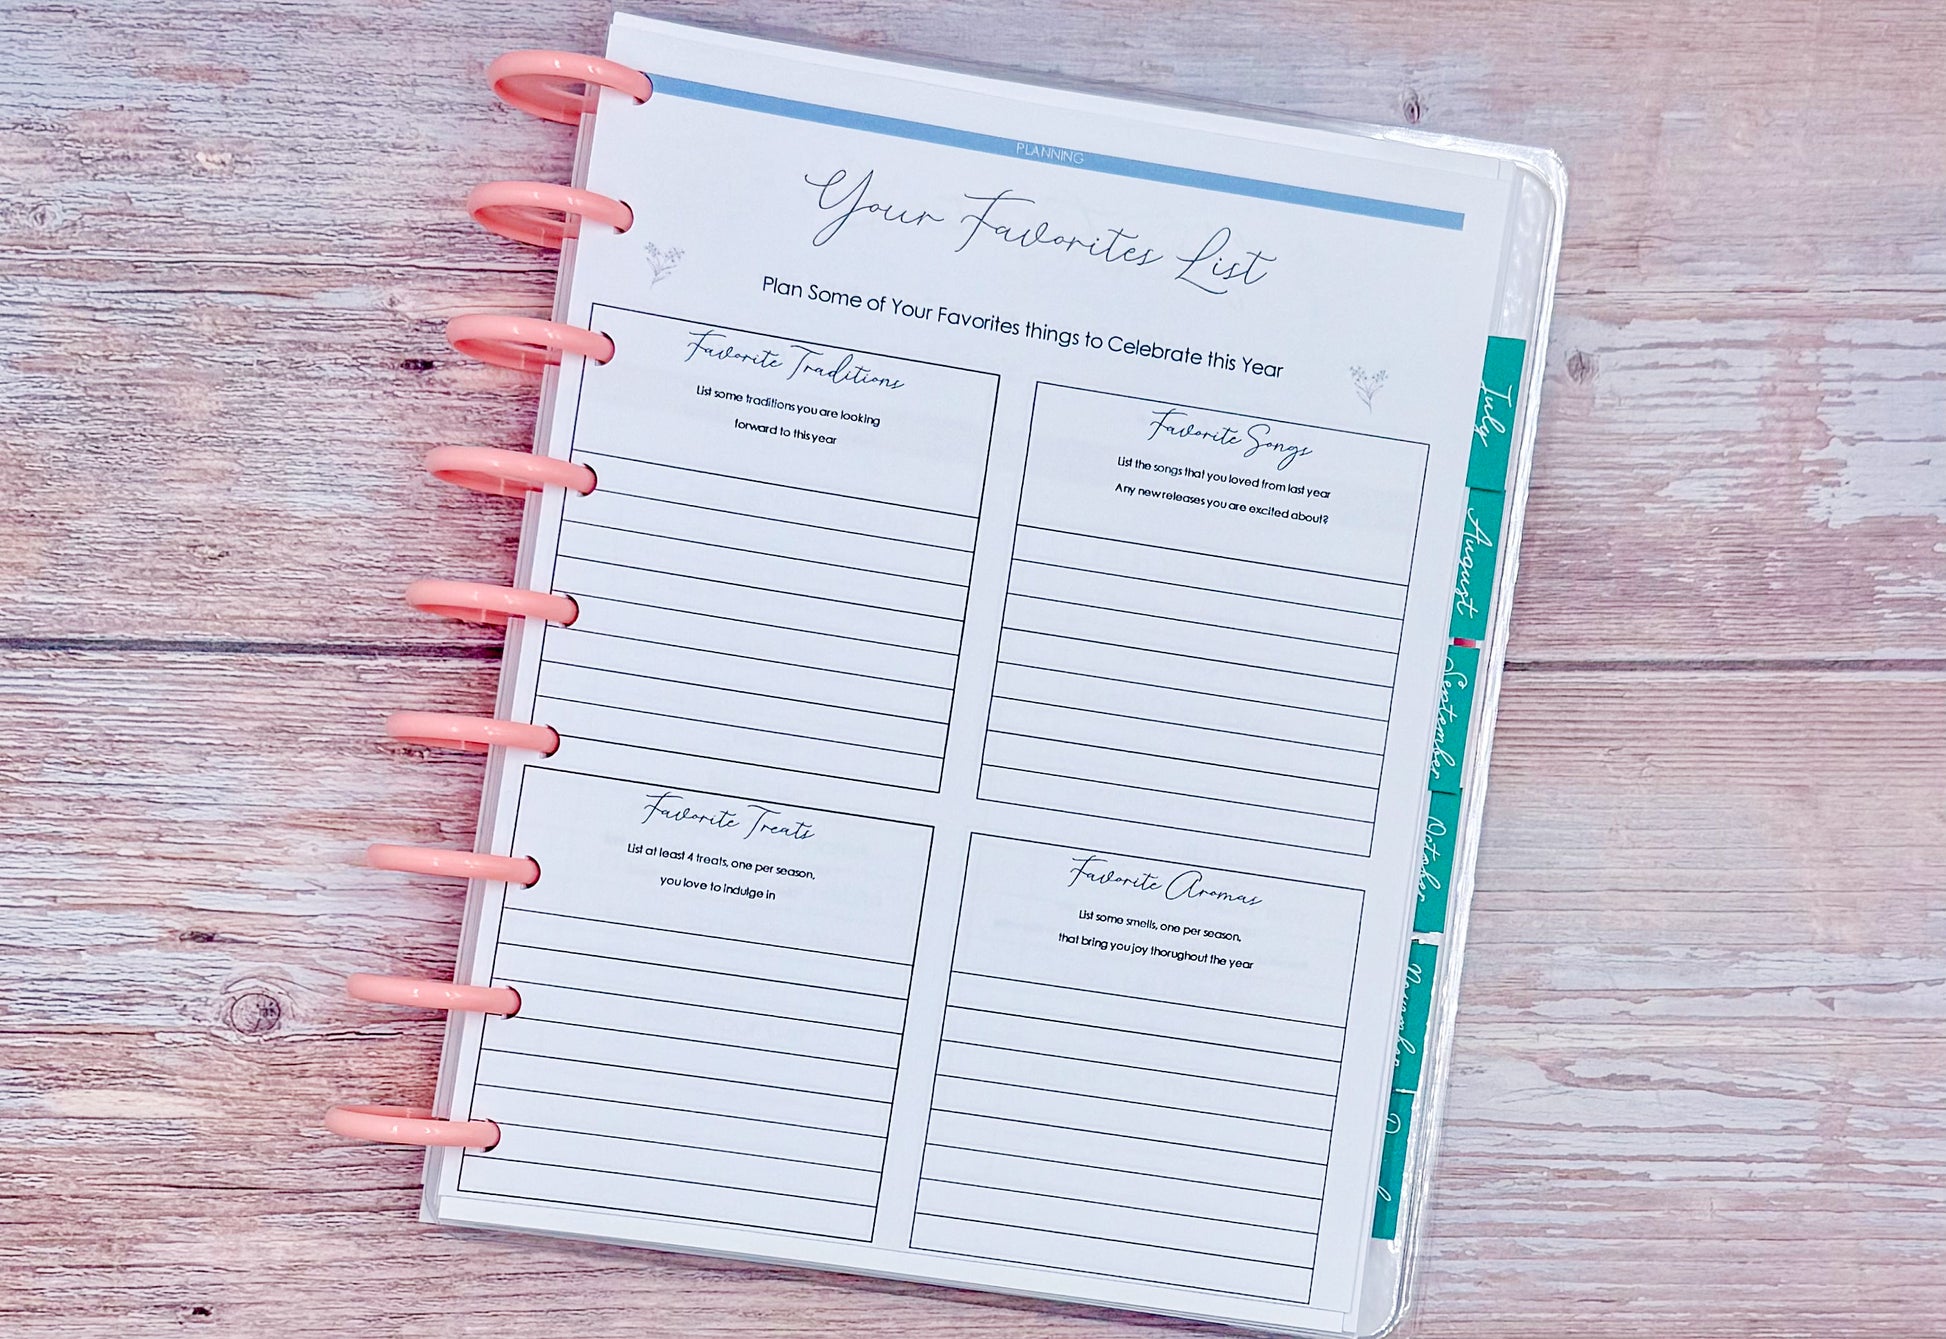 PLANNING
Your Favorites List
Plan Some of Your Favorites things to Celebrate this Year
Favorite Traditions
List some traditions you are looking
forward to this year
Favorite Songs
List the songs that you loved from last year
Any new releases you are excited about?
Favorite Treats
List at least 4 treats, one per season,
you love to indulge in
Favorite Aromas
List some smells, one per season,
that bring you joy thorughout the year
July
August
September
October
November